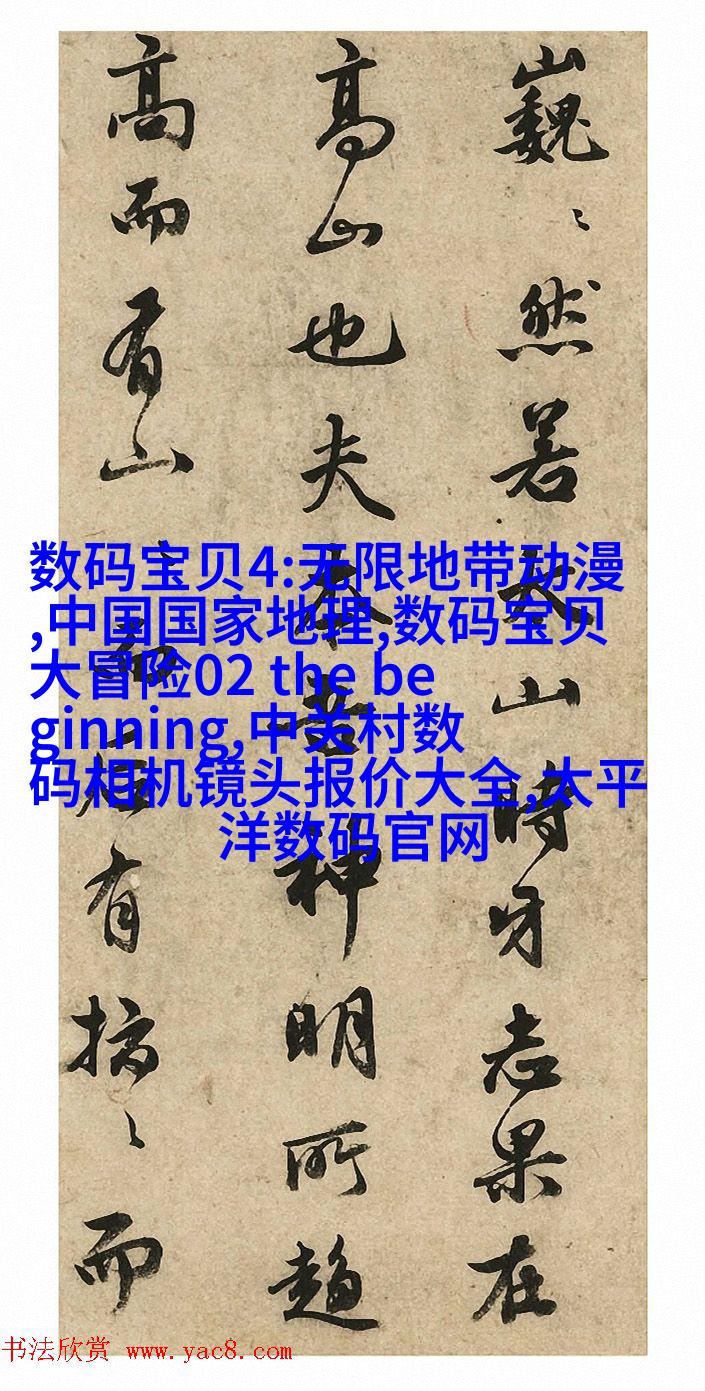 巍〻然若太山時牙志果在
高山也夫本神明所趨
高而有山有而
数码宝贝4:无限地带动漫
,中国国家地理,数码宝贝
大冒险02 the be
ginning,中关村数
码相机镜头报价大全,太平
洋数码官网
书法欣赏 www.yac8.com